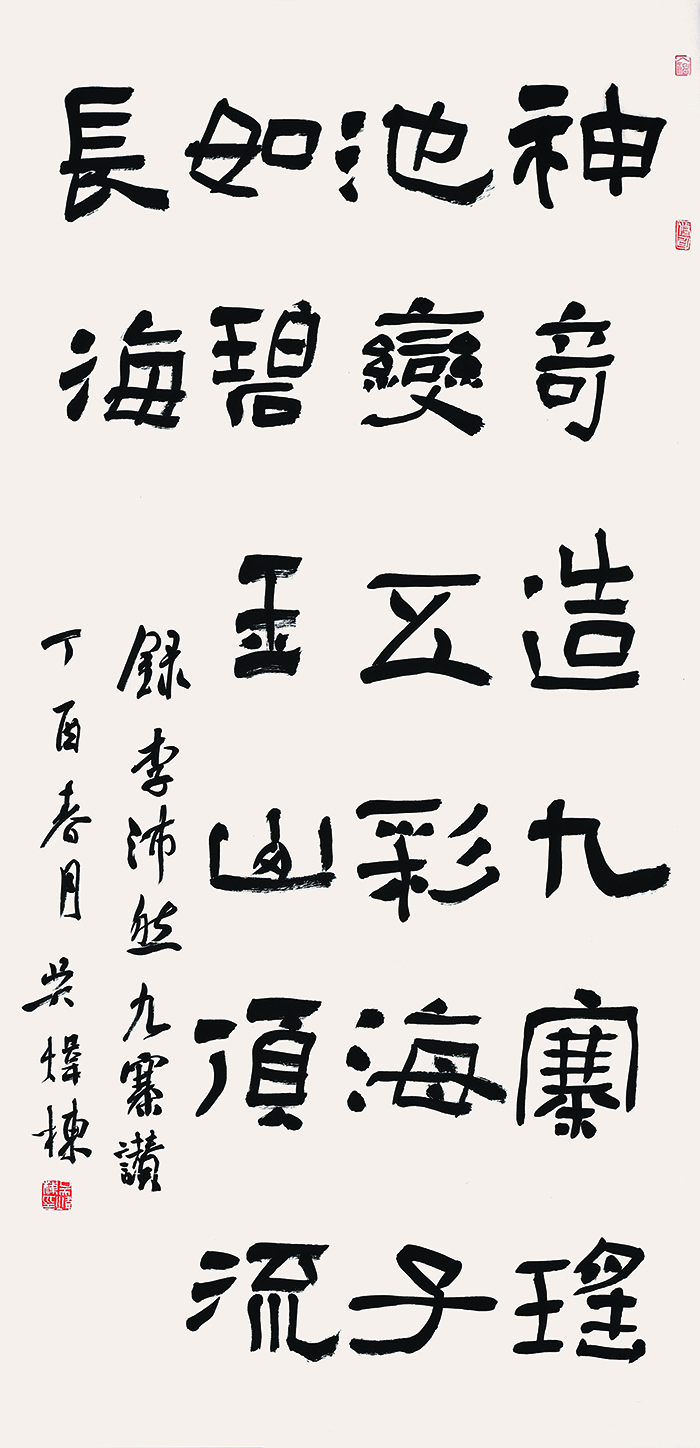 神竒造九寨瑤
池變五彩海子
如碧玉山頂流
長海
録李沛然九寨讃
丁酉春月吴煒棟